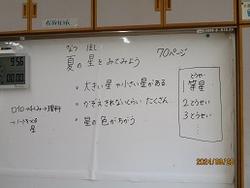 なつ ほし
夏の星をみてみよう
70ページ
・大きい星や小さい星がある
・かぞえきれないくらい たくさん
・星の色がちがう
とうせい
1等星
2とうせい
3とうせい
→ノートをとる
星
9:56
00:00